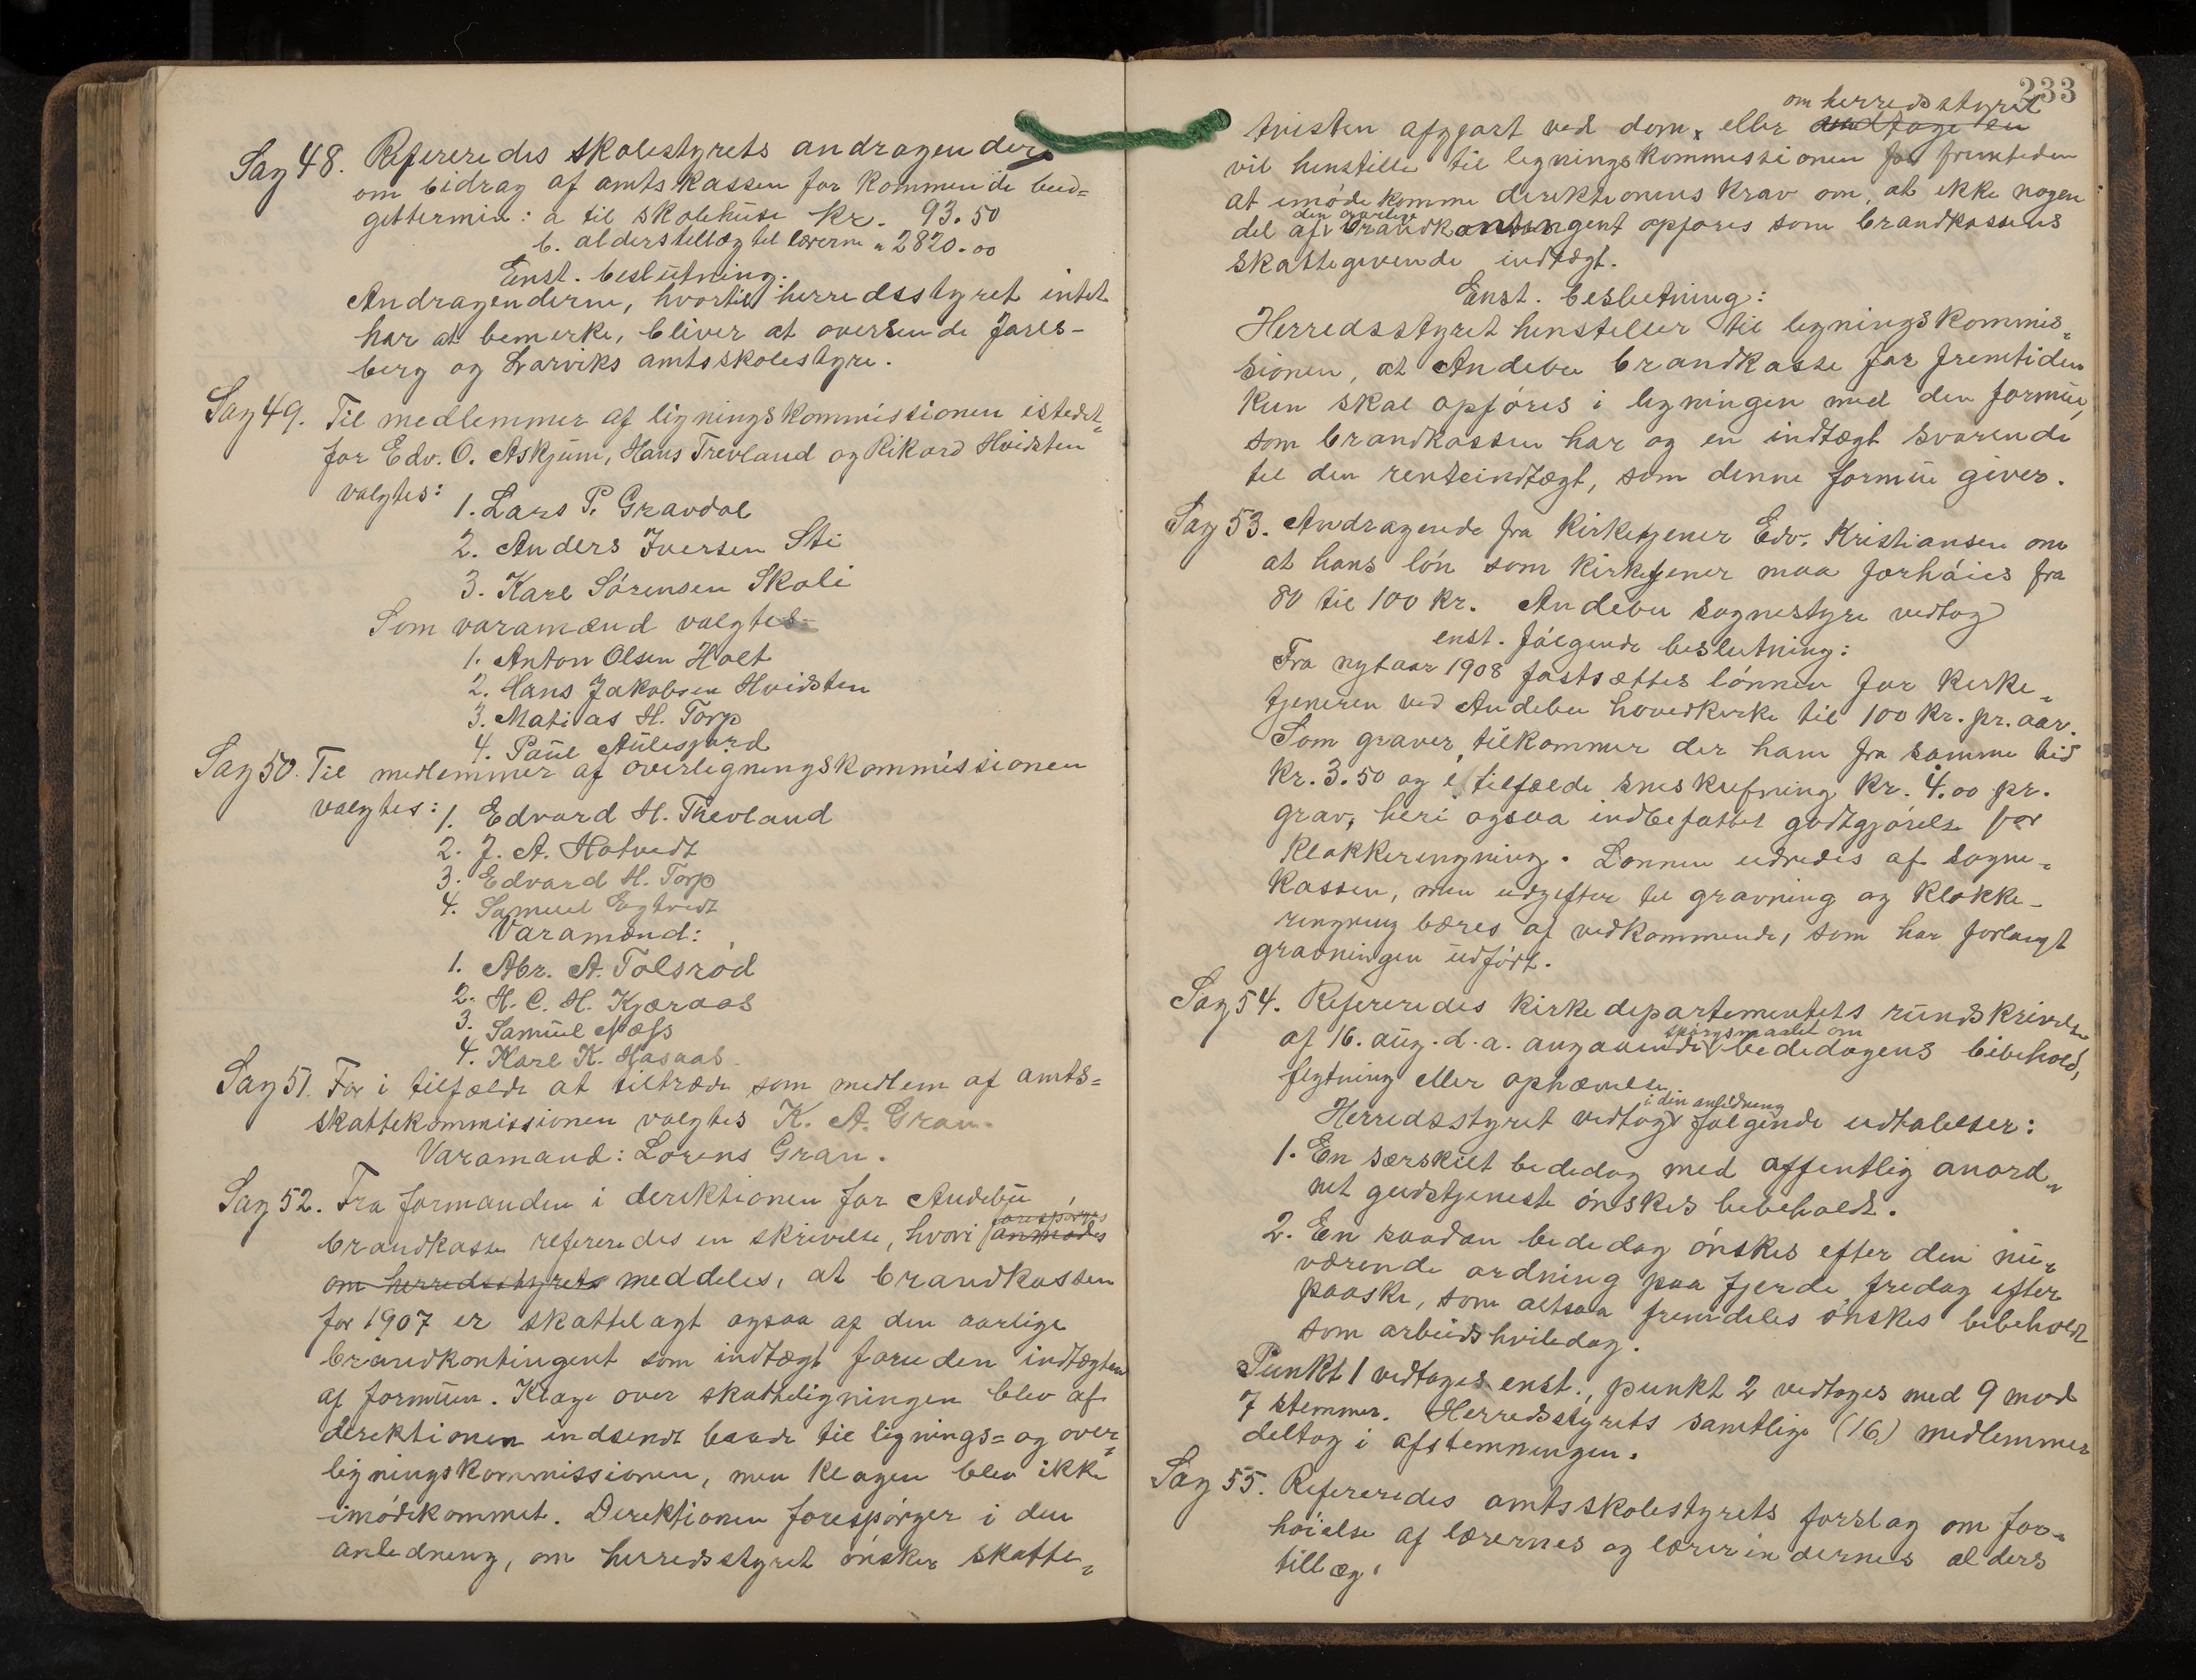 Sag 48. Refereredes skolestyrets andragender
om bidrag af amtskassen for kommende bud=
gettermin: a til skolehuse kr. 93.50
b. alderstillæg til lærerne „ 2820.00
Enst. beslutning.
Andragenderne, hvortil herredsstyret intet
har at bemerke, bliver at oversende Jarls-
berg og Larviks amtsskolestyre.
Sag 49. Til medlemmer af ligningskommissionen istedet=
for Edv. O. Askjum, Hans Trevland og Rikard Hvidsten
valgtes:
1. Lars P. Gravdal
2. Anders Iversen Sti
3. Karl Sörensen Skoli
Som varamænd valgtes
1. Anton Olsen Holt
2. Hans Jakobsen Hvidsten
3. Matias H. Torp
4. Paul Aulesjord
Sag 50. Til medlemmer af overligningskommissionen
valgtes: 1. Edvard H. Trevland
2. J. A. Hotvedt
3. Edvard H. Torp
4. Samuel Eghvedt
Varamænd:
1. Abr. A. Tolsröd
2. H. C. H. Kjæraas
3. Samuel Næss
4. Karl K. Hasaas
Sag 51. For i tilfælde at tiltræde som medlem af amts=
skattekommissionen valgtes K. A. Gran.
Varamand: Lorens Gran.
Sag 52. Fra formanden i direktionen for Andebu
forespörges
brandkasse refereredes en skrivelse, hvori anmodes
om herredsstyrets meddeles, at brandkassen
for 1907 er skattelagt ogsaa af den aarlige
brandkontingent som indtægt foruden indtægten
af formuen. Klage over skatteligningen blev af
direktionen indsendt baade til lignings= og over=
ligningskommissionen, men klagen blev ikke
imödekommet. Direktionen forespörger i den
anledning, om herredsstyret önsker skatte=
233
om herredsstyret
tvisten afgjort ved dom, eller
vil henstille til ligningskommissionen for fremtiden
at imödekomme direktionens krav om, at ikke nogen
den aarlige
del af brandkontingent opföres som brandkassens
skattegivende indtægt.
Enst. beslutning:
Herredsstyret henstiller til ligningskommis=
sionen, at Andebu brandkasse for fremtiden
kun skal opföres i ligningen med den formue,
som brandkassen har og en indtægt svarende
til den renteindtægt, som denne formue giver.
Sag 53. Andragende fra kirketjener Edv. Kristiansen om
at hans lön som kirketjener maa forhöies fra
80 til 100 kr. Andebu sognestyre vedtog
enst. fölgende beslutning:
Fra nytaar 1908 fastsættes lönnen for kirke=
tjeneren ved Andebu hovedkirke til 100 kr. pr. aar.
Som graver tilkommer der ham fra samme tid
kr. 3.50 og i tilfælde sneskufning kr. 4.00 pr.
grav, heri ogsaa indbefattet godtgjörelse for
klokkeringning. Lönnen udredes af sogne=
kassen, men udgifter til gravning og klokke-
ringning bæres af vedkommende, som har forlangt
gravningen udfört.
Sag 54. Refereredes kirkedepartementets rundskrivelse
spörgsmaalet om
af 16. aug. d. a. angaaende bededagens bibehold,
flytning eller ophævelse.
i den anledning
Herredsstyret vedtog fölgende udtalelser:
1. En særskilt bededag med offentlig anord=
net gudstjeneste önskes bibeholdt.
2. En saadan bededag önskes efter den nu=
værende ordning paa fjerde fredag efter
paaske, som altsaa fremdeles önskes bibeholdt
som arbeidshviledag.
Punkt 1 vedtoges enst., punkt 2 vedtoges med 9 mod
7 stemmer. Herredsstyrets samtlige (16) medlemmer
deltog i afstemningen.
Sag 55. Refereredes amtsskolestyrets forslag om for=
höielse af lærernes og lærerindernes alders
tillæg.